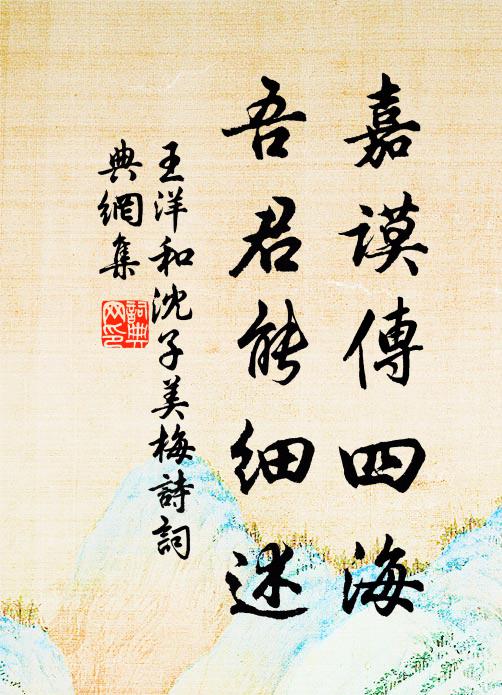 嘉謨傳四海
吾君能細述
王洋和沈子美梅詩詞
典網集
詞典
网印